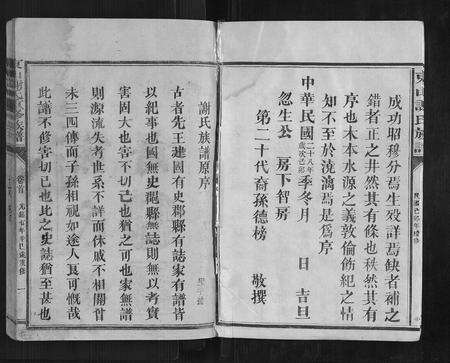 東山謝氏族譜
成功昭穆分焉生歿詳焉缺者補之
錯者正之井然其有條也秩然其有
序也木本水源之義敦倫飭紀之情
知不至於澆漓焉是爲序
中華民國二十八年歲次己卯季冬月 日 吉旦
忽生公 房下智房
第二十代裔孫德榜 敬撰
謝氏族譜原序
古者先王建國有史郡縣有誌家有譜皆
以紀事也國無史郡縣無誌則無以考實
害固大也害不切己也猶之可也家無譜
則源流失考世系不詳而休戚不相關昔
未三四傳而子孫相視如途人良可慨哉
此譜不修害切己也此之史誌猶至甚也
卷首